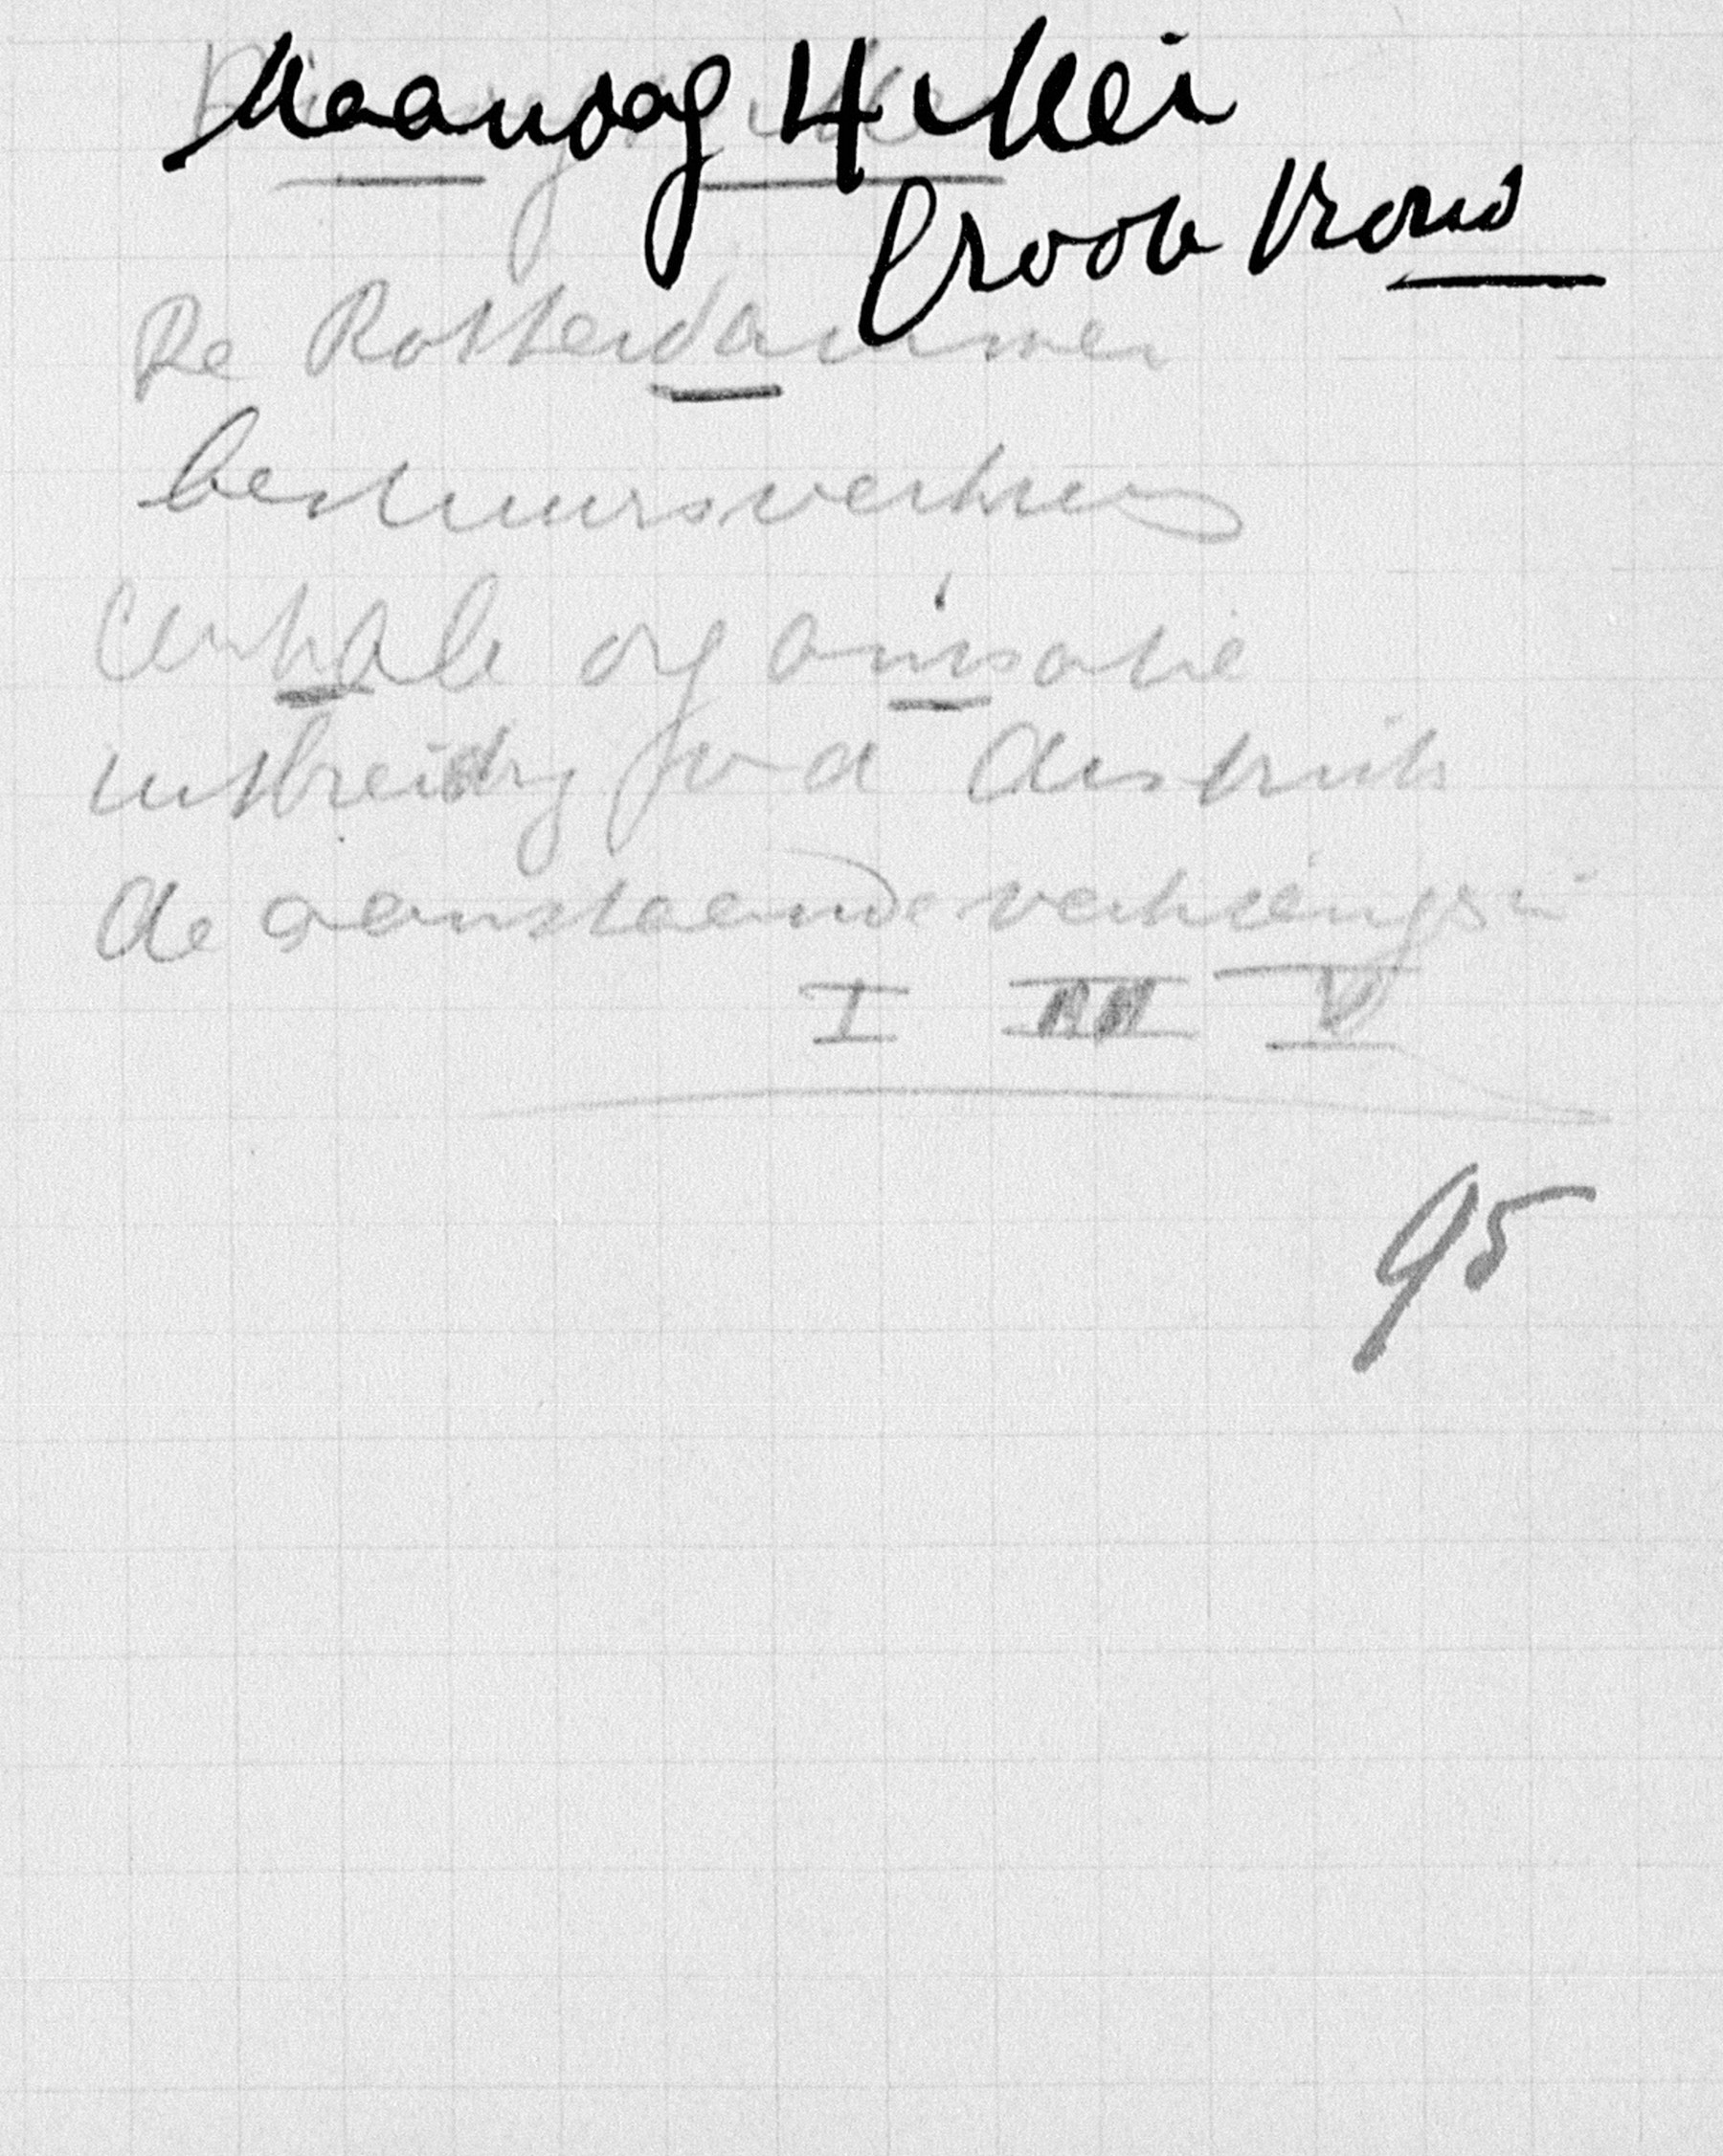 Maandag 4 Mei
Croon Vrouw
De Rotterdammer
bestuursverkiezing
Centrale organisatie
uitbreiding v d district
de aanstaande verkiezingen
I III V
95